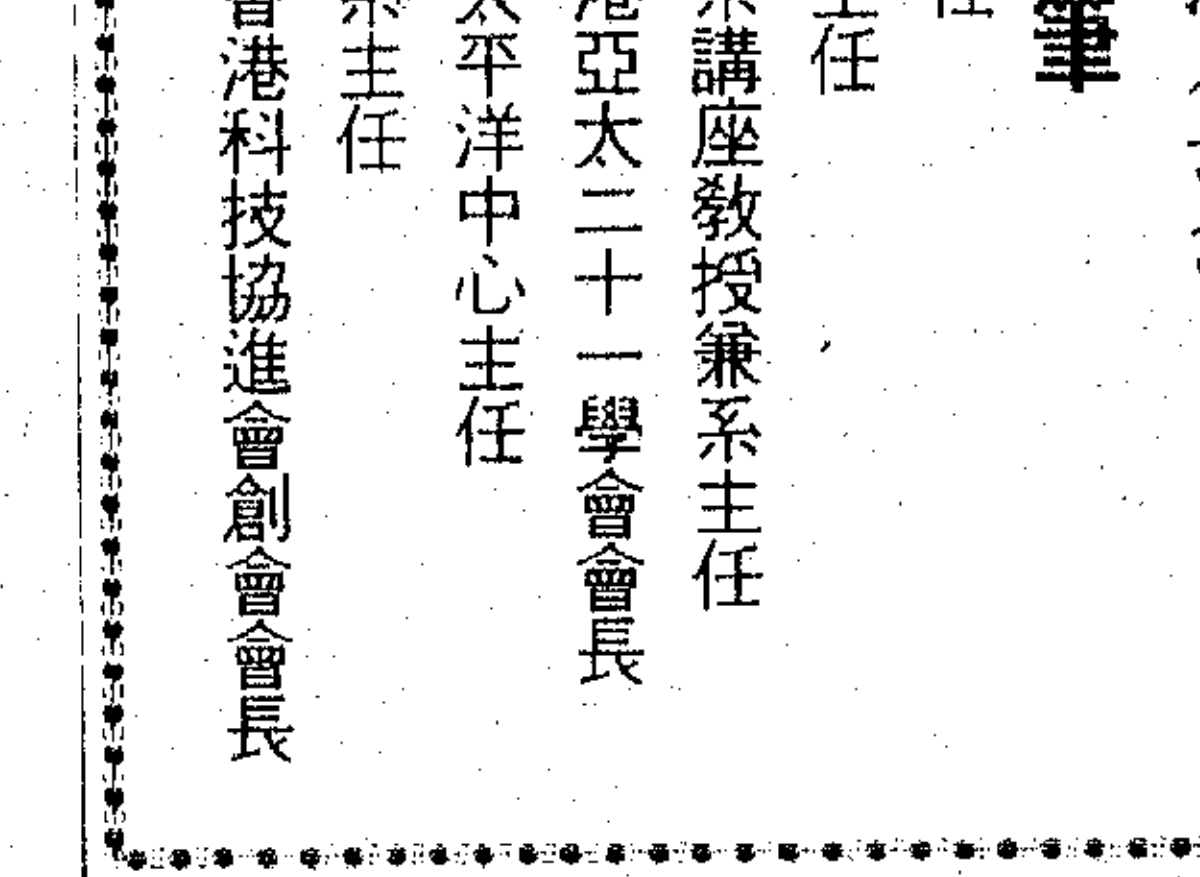 筆
任
主任
系講座教授兼系主任
港亞太二十一學會會長
太平洋中心主任
系主任
香港科技協進會創會會長